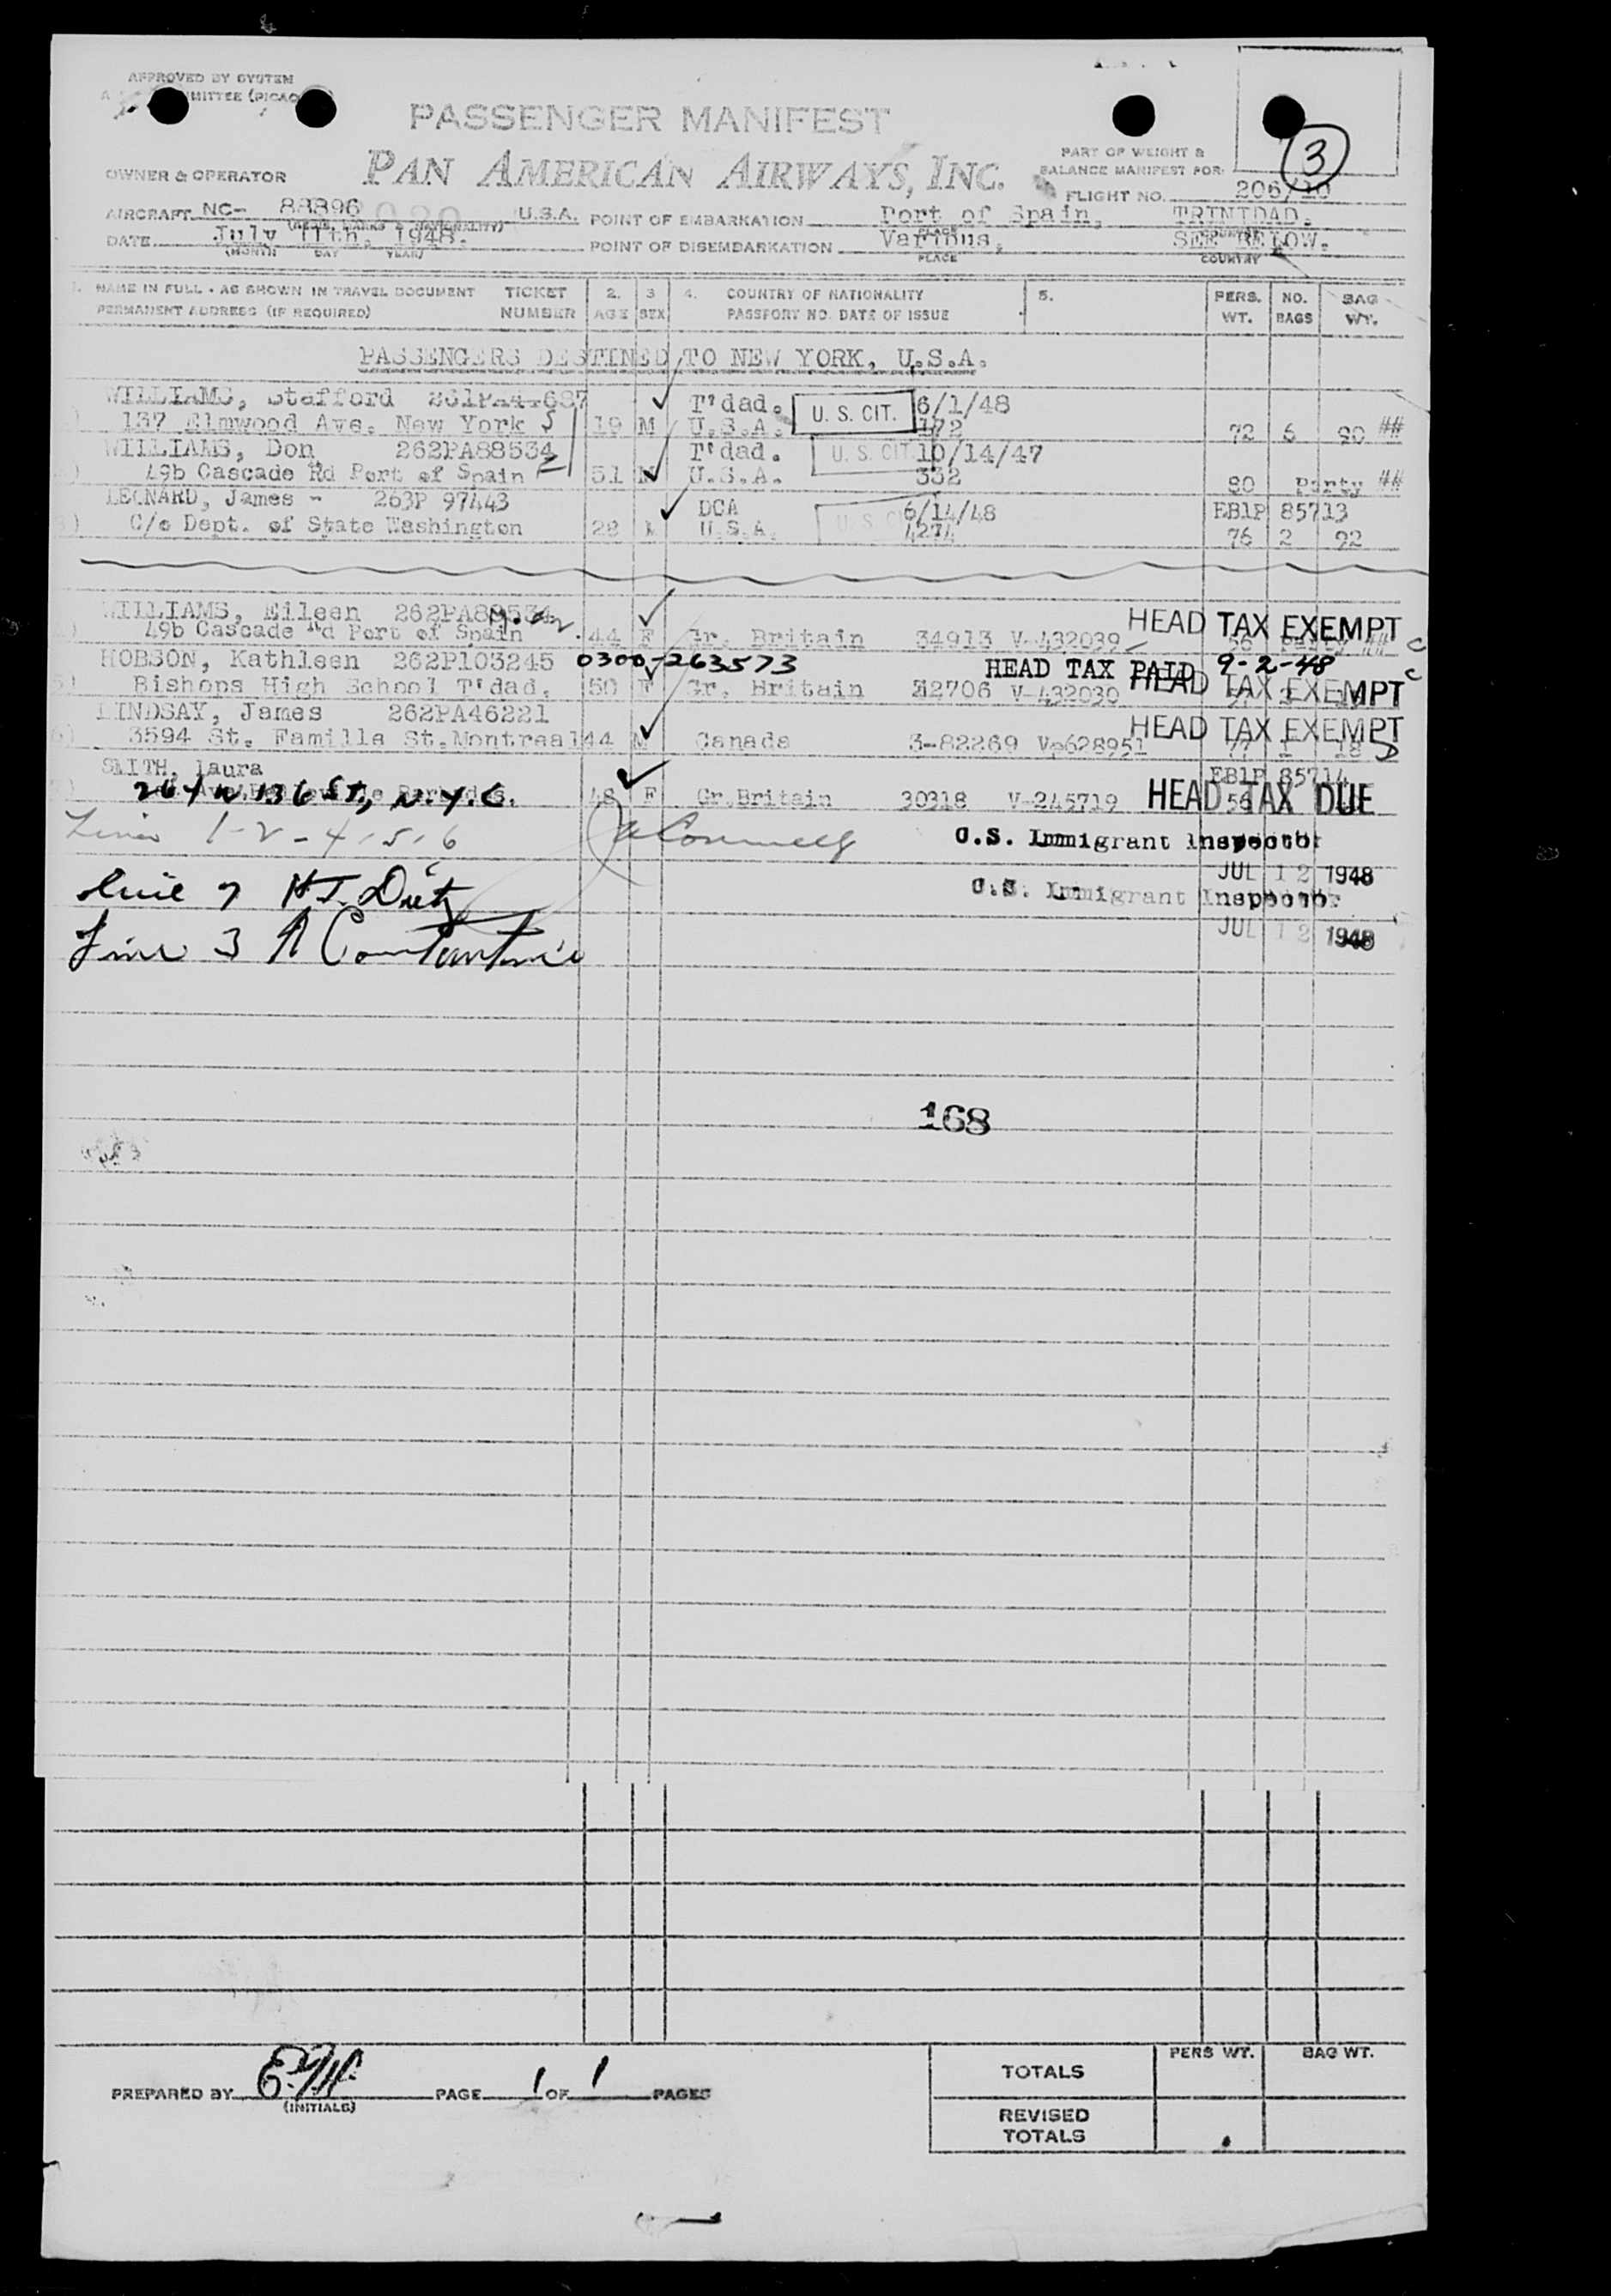 APPROVED BY SYSTEM
MITTEE (PICAO
PASSENGER MANIFEST
3
OWNER & OPERATOR PAN AMERICAN AIRWAYS, INC.
PART OF WEIGHT &
BALANCE MANIFEST FOR:
FLIGHT NO. 206/
AIRCRAFT NC- 88896 U.S.A. POINT OF EMBARKATION Port of Spain, TRINIDAD.
DATE July 11th, 1948. POINT OF DISEMBARKATION Various, SEE BELOW.
(MONTH DAY YEAR) PLACE COUNTRY
1. NAME IN FULL - AS SHOWN IN TRAVEL DOCUMENT TICKET 2. 3 4. COUNTRY OF NATIONALITY 5. PERS. NO. BAG
PERMANENT ADDRESS (IF REQUIRED) NUMBER AGE SEX PASSPORT NO. DATE OF ISSUE WT. BAGS WT.
PASSENGERS DESTINED TO NEW YORK, U.S.A.
WILLIAMS, Stafford T'dad. 6/1/48
137 Elmwood Ave. New York 19 M U.S.A. U. S. CIT. 172 72 6 90 ##
WILLIAMS, Don 262PA88534 T'dad. 10/14/47
49b Cascade Rd Port of Spain 51 M U.S.A. U. S. CIT. 332 80 Party ##
LEONARD, James - 263P 97443 DCA 6/14/48 EB1P 85713
C/o Dept. of State Washington 28 M U.S.A. 4274 76 2 92
WILLIAMS, Eileen 262PA88534 HEAD TAX EXEMPT
49b Cascade Rd Port of Spain 44 F Gr. Britain 34913 V-432039 56 Party ## C
HOBSON, Kathleen 262P103245 0300-263573 HEAD TAX PAID 9-2-48 C
Bishops High School T'dad. 50 F Gr. Britain V-432030 HEAD TAX EXEMPT
LINDSAY, James 262PA46221 HEAD TAX EXEMPT
3594 St. Famille St.Montreal 44 M Canada 3-82269 Vp628951 77 1 18
SMITH, Laura EB1P 85714
261 W 136 St, N.Y.C 48 F Gr.Britain 30318 V-245719 56 HEAD TAX DUE
Lines 1-2-4-5-6 U.S. Immigrant Inspector
JUL 12 1948
Line 7 H.J. Dietz U.S. Immigrant Inspector
JUL 12 1948
Line 3
168
PREPARED BY PAGE 1 OF 1 PAGES
(INITIALS)
PERS WT. BAG WT.
TOTALS
REVISED
TOTALS